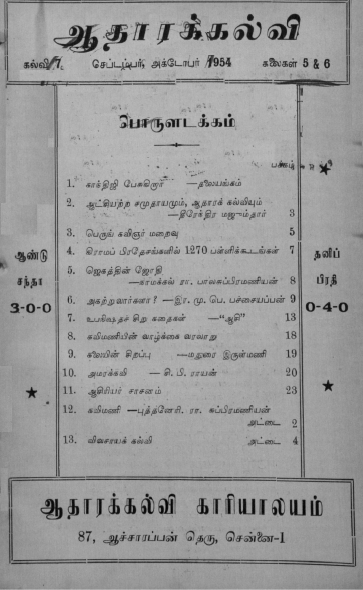 ஆதாரக்கல்வி
கல்வி 7. செப்டம்பர், அக்டோபர் 1954 கலைகள் 5 & 6
பொருளடக்கம்
பக்கம்
1. காந்திஜி பேசுகிறார் —தலையங்கம்
2. ஆட்சியற்ற சமுதாயமும், ஆதாரக் கல்வியும்
—திரேந்திர மஜும்தார் 3
3. பெருங் கவிஞர் மறைவு 5
4. கிராமப் பிரதேசங்களில் 1270 பள்ளிக்கூடங்கள் 7
5. ஜெகத்தின் ஜோதி
—காமக்கல் ரா. பாலசுப்பிரமணியன் 8
6. அகற்றுவார்களா? —இர. மு. பெ. பச்சையப்பன் 9
7. உபநிஷதச் சிறு கதைகள் —"ஆதி" 13
8. கவிமணியின் வாழ்க்கை வரலாறு 18
9. கலையின் சிறப்பு —மதுரை இருள்மணி 19
10. அமரக்கவி — சி. பி. ராயன் 20
11. ஆசிரியர் சாசனம் 23
12. கவிமணி —புத்தனேரி. ரா. சுப்பிரமணியன்
அட்டை 2
13. விவசாயக் கல்வி அட்டை 4
ஆண்டு
சந்தா
3-0-0
தனிப்
பிரதி
0-4-0
ஆதாரக்கல்வி காரியாலயம்
87, ஆச்சாரப்பன் தெரு, சென்னை-1